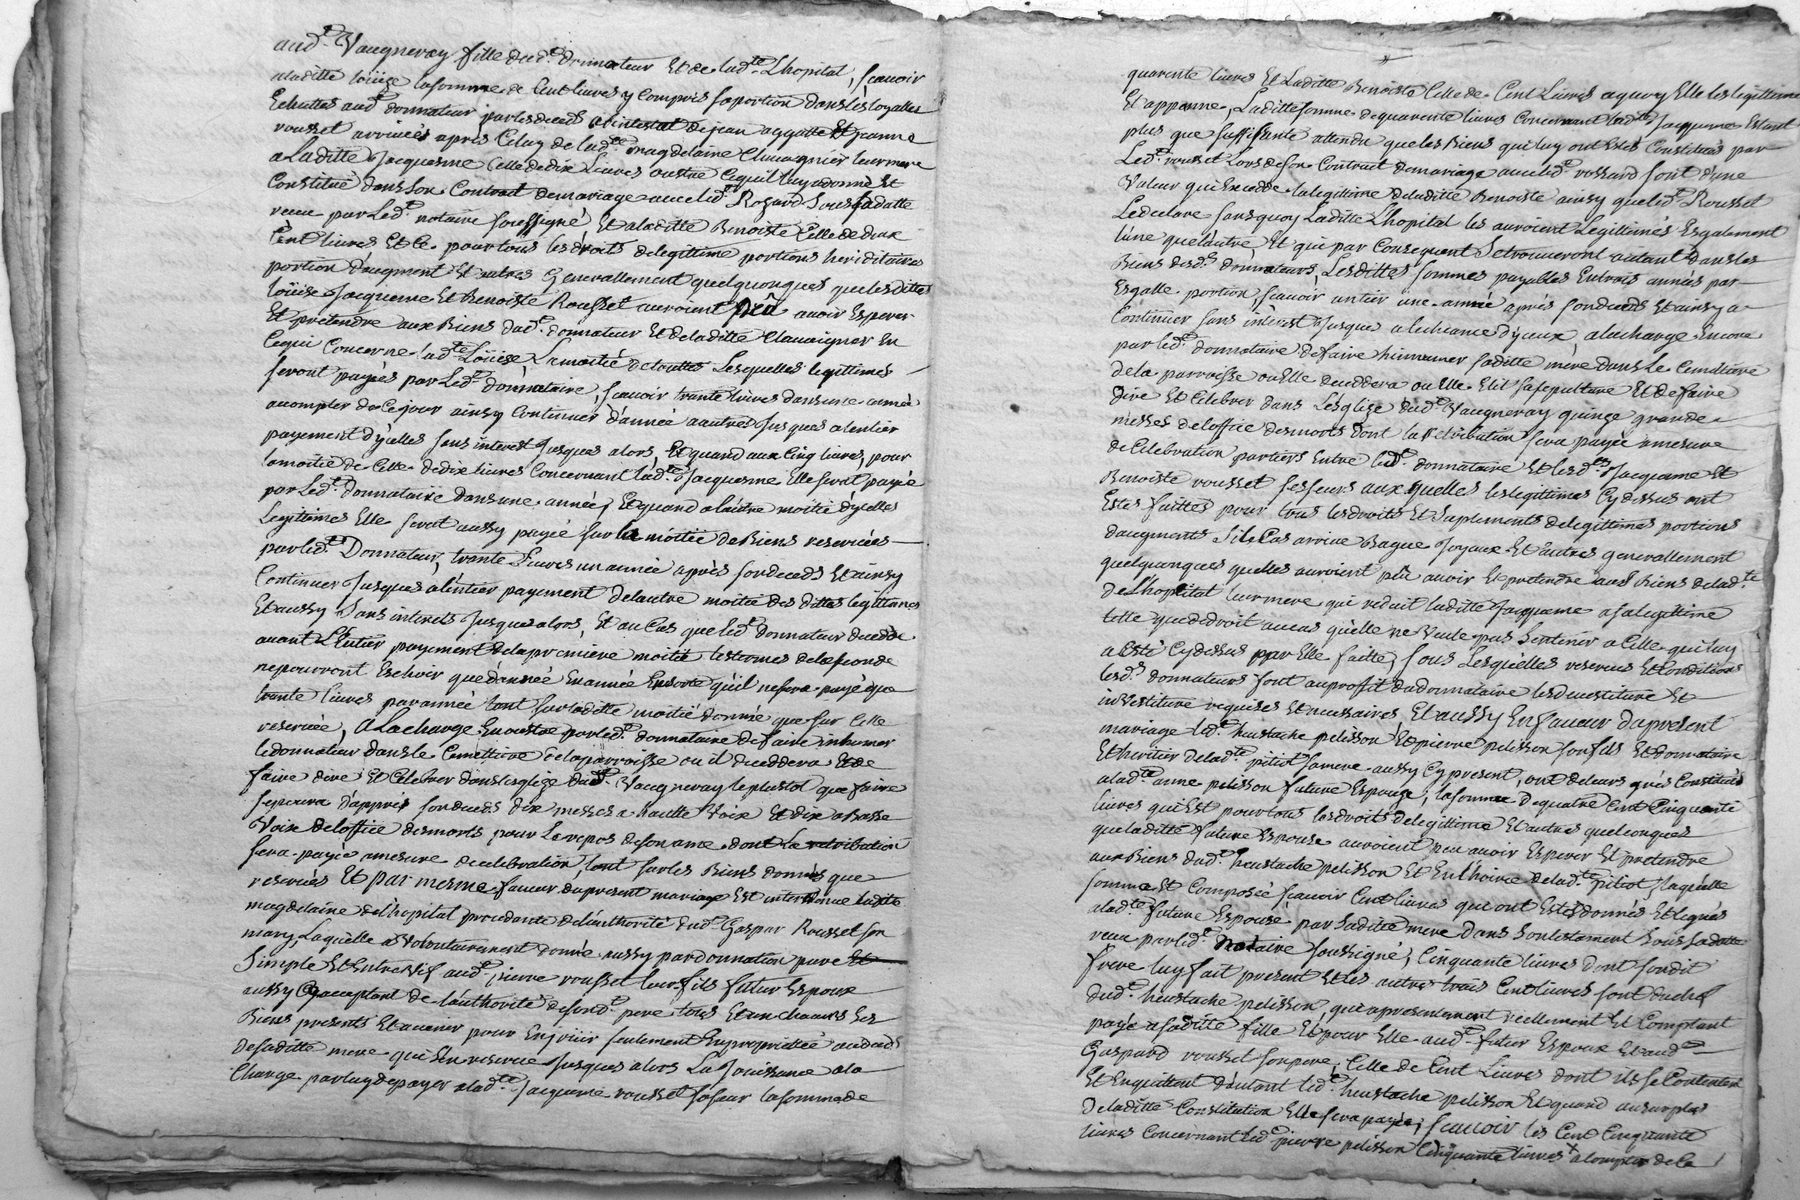 aud.t Vaugneray fille dud.t donnateur Et de lad.te Lhopital, scavoir
aladitte loüize lasomme de Cent livres y Compris saportion dans les loyalles
Echuttes aud.t donnateur parlesdeceds abintestat dejean aggatte Et jeanne
rousset arrivées après Celuy de lad.te magdelaine Clavaignier leurmere
a Laditte Jacquesme Celle dedix Livres outre Cequil luy a donné Et
Constitué dans son Contrat demariage avec led.t Rozard Sous sa datte
receu par Led.t notaire soussigné, Et aladitte Benoiste Celle de deux
Cent livres Et Ce pour tous lesdroits delegittime portions hereditaires
portion d'augment Et autres Generallement quelquonques que lesdittes
loüise Jacqueme Et Benoiste Rousset auroient peû avoir Esperer
Et pretendre aux Biens dud.t donnateur Et deladitte Clavaignier En
Cequi Concerne lad.te Loüise Lamoitié detouttes Lesquelles legittimes
seront payées par Led.t donnataire, scavoir trante livres dans une année
acompter de Cejour ainsy Continuer d'année a autre Jusques alentier
payement d'ycelles sans interest Jusques alors, Et quand aux Cinq livres, pour
lamoitié de Celle dedix livres Concernant lad.te Jacquesme Elle serat payée
par Led.t Donnataire dans une année, Et quand a lautre moitié d'ycelles
Legittimes Elle serat aussy payée sur la moitié de Biens reservées
par led.t Donnateur, trante Livres un année après son deceds Et ainsy
Continuer Jusques a l'entier payement delautre moitié des dittes legittimes
Et aussy Sans interets Jusques alors, Et au Cas que led.t donnateur deceda
avant L'Entier payement delapremiere moitié lestermes delaseconde
nepourront Eschoir que d'année En année Ensorte qu'il nesera payé que
trante livres parannée tant sur laditte moitié donnée que sur Celle
reservée, A Lacharge Enoutre par led.t donnataire defaire inhumer
ledonnateur dans le Cemettiere delaparroisse ou il decedera Et de
faire dire Et Celebrer dans leglize dud.t Vaugneray leplustot que faire
sepourra d'apprès son deceds dix messes a hautte Voix Et dix a Basse
Voix de loffice desmorts pour Le repos deson ame dont La retribution
sera payée amesure decelebration, tant sur les Biens donnés que
reservés Et par mesme faveur dupresent mariage Est intervenue laditte
magdelaine del'hopital procedante de l'authorité dud.t Gaspar Rousset son
mary, Laquelle a Volontairement donné aussy par donnation pure Et
Simple Et Entrevif aud.t pierre rousset leur fils futur Espoux
aussy Cy acceptant de l'authorité desond.t pere tous Et un Chacuns Ses
Biens presents Et avenir pour En joüir seulement Enproprieté au deced
desaditte mere qui s'En reserve Jusques alors La Jouissance ala
Charge parluy depayer alad.te Jacqueme rousset sa sœur lasomme de
quarente livres Et Laditte Benoiste Celle de Cent Livres aquoy Elle les legittime
Et appanne, Laditte somme de quarente livres Concernant lad.te Jacqueme Estant
plus que suffisante attendu que les Biens qui luy ont Estés Constitués par
Led.t rousset Lors de son Contrat demariage avec led.t rossard sont d'une
Valeur qui Excedde la legittime deladitte Benoiste ainsy que led.t Rousset
Ledeclare sans quoy Laditte Lhopital les auroient Legittimés Esgalement
lune que lautre Et qui par Consequent Setrouveront autant dans les
Biens desd.ts donnateurs, Lesdittes sommes payables En trois années par
Esgalle portion, scavoir un tier une année après son deceds Et ainsy a
Continuer sans interest Jusque a lechéance d'yceux a lacharge Encore
par led.t donnataire defaire hinnumer saditte mère dans Le Cemettiere
de la parroisse ou Elle deceddera ou Elle Elit sa sepulture Et de faire
dire Et Celebrer dans Lésglize dud.t Vaugneray quinze grande
messes deloffice desmorts dont la retribution sera payée a mesure
de Celebration partiers Entre led.t donnataire Et lesd.es Jacqueme Et
Benoiste rousset ses seurs aux quelles les legittimes Cy dessus ont
Estes faittes pour tous les droits Et Suplements delegittimes portions
daugments Si le Cas arrive Bague Joyaux Et autres generallement
quelquonques quelles auroient pûe avoir Et pretendre aux Biens delad.te
De Lhopital leur mere qui reduit laditte Jacqueme a sa legittime
telle que dedroit aucas quelle ne Veule pas Sentenir a Celle qui luy
a Esté Cydessus par Elle faitte, sous Lesquelles reserves Et Conditions
lesd.s donnateurs font auproffit dudonnataire lesdevestiture Et
investiture requises Et necessaires, Et aussy En faveur dupresent
mariage led.t heustache pelisson Et pierre pelisson son fils Et donnataire
Et heritier delad.te pitiot sa mere aussy Cy present, ont deleurs grés Constitués
alad.te anne pelisson future Espouze, la somme de quatre Cent Cinquante
livres qui Est pour tous lesdroits delegittime Et autres quelconques
que laditte future Espouse auroient peu avoir Esperer Et pretendre
aux Biens dud.t heustache pelisson Et En l'hoirie delad.te pitiot, Laquelle
somme Et Composée scavoir Cent livres qui ont Estés donnés Et legués
alad.te future Espouse par Saditte mere Dans Son testament Sous Sadatte
receu par led.t notaire soussigné, Cinquante livres dont sondit
frere luy fait present Et les autres trois Cent livres sont du chef
dud.t heustache pelisson, qui apresentement réellement Et Comptant
payé a saditte fille Et pour Elle aud.t futur Espoux Et aud.t
Gaspard rousset son pere, Celle de Cent Livres dont ils se Contentent
Et Enquittent d'autant led.t heustache pelisson Et quand au surplus
De laditte Constitution Elle sera payée, scavoir les Cent Cinquante
livres Concernant led.t pierre pelisson Cinquante livres a Compter de Ce